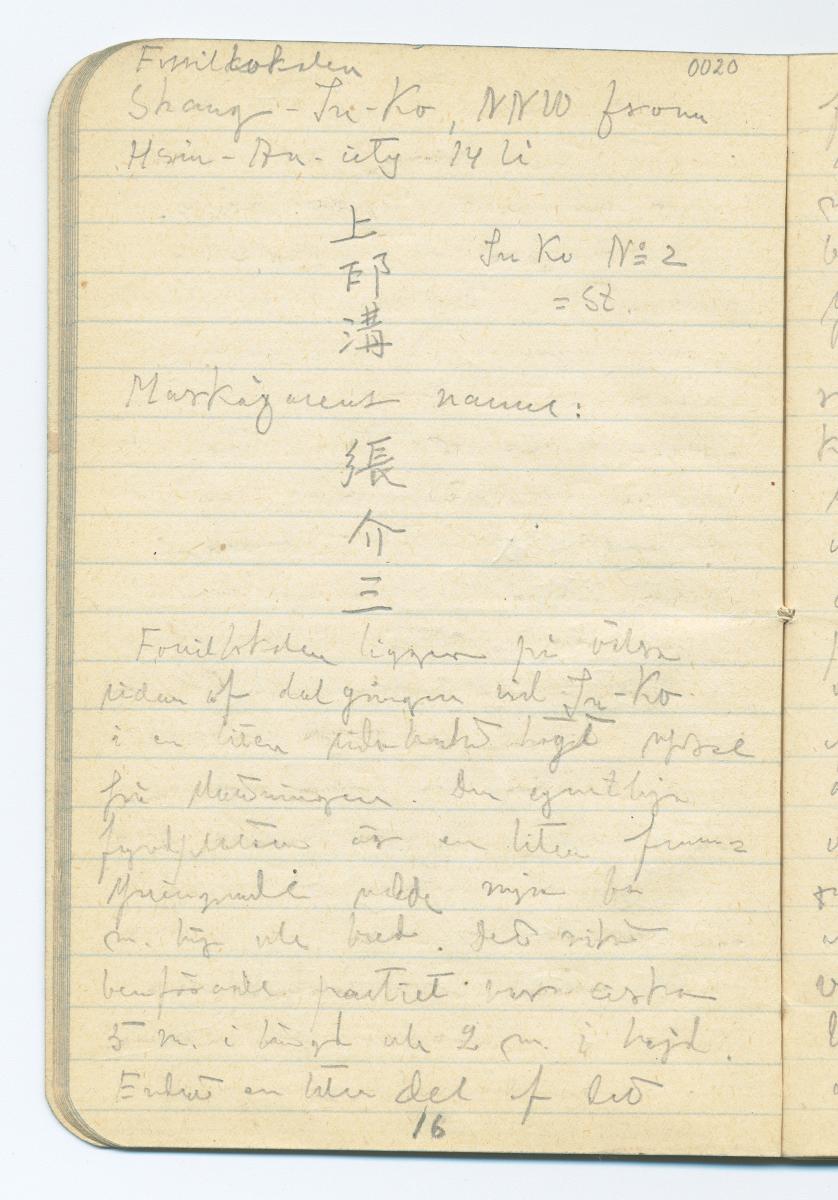 Fossillokalen
0020
Shang-In-Ko, NNW from
Hsin-An-city 14 li
上
邙
溝
In Ko No 2
= St.
Markägarens namn:
張
介
三
Fossillokalen ligger på östra
sidan af dalgången vid In-Ko
i en liten högt uppe
från mynningen. Den egentliga
fyndplatsen är en liten fram-
springande udde
m. hög och bred. Det rikt
benförande partiet var cirka
5 m. i längd och 2 m. i höjd.
Endast en liten del af det
16